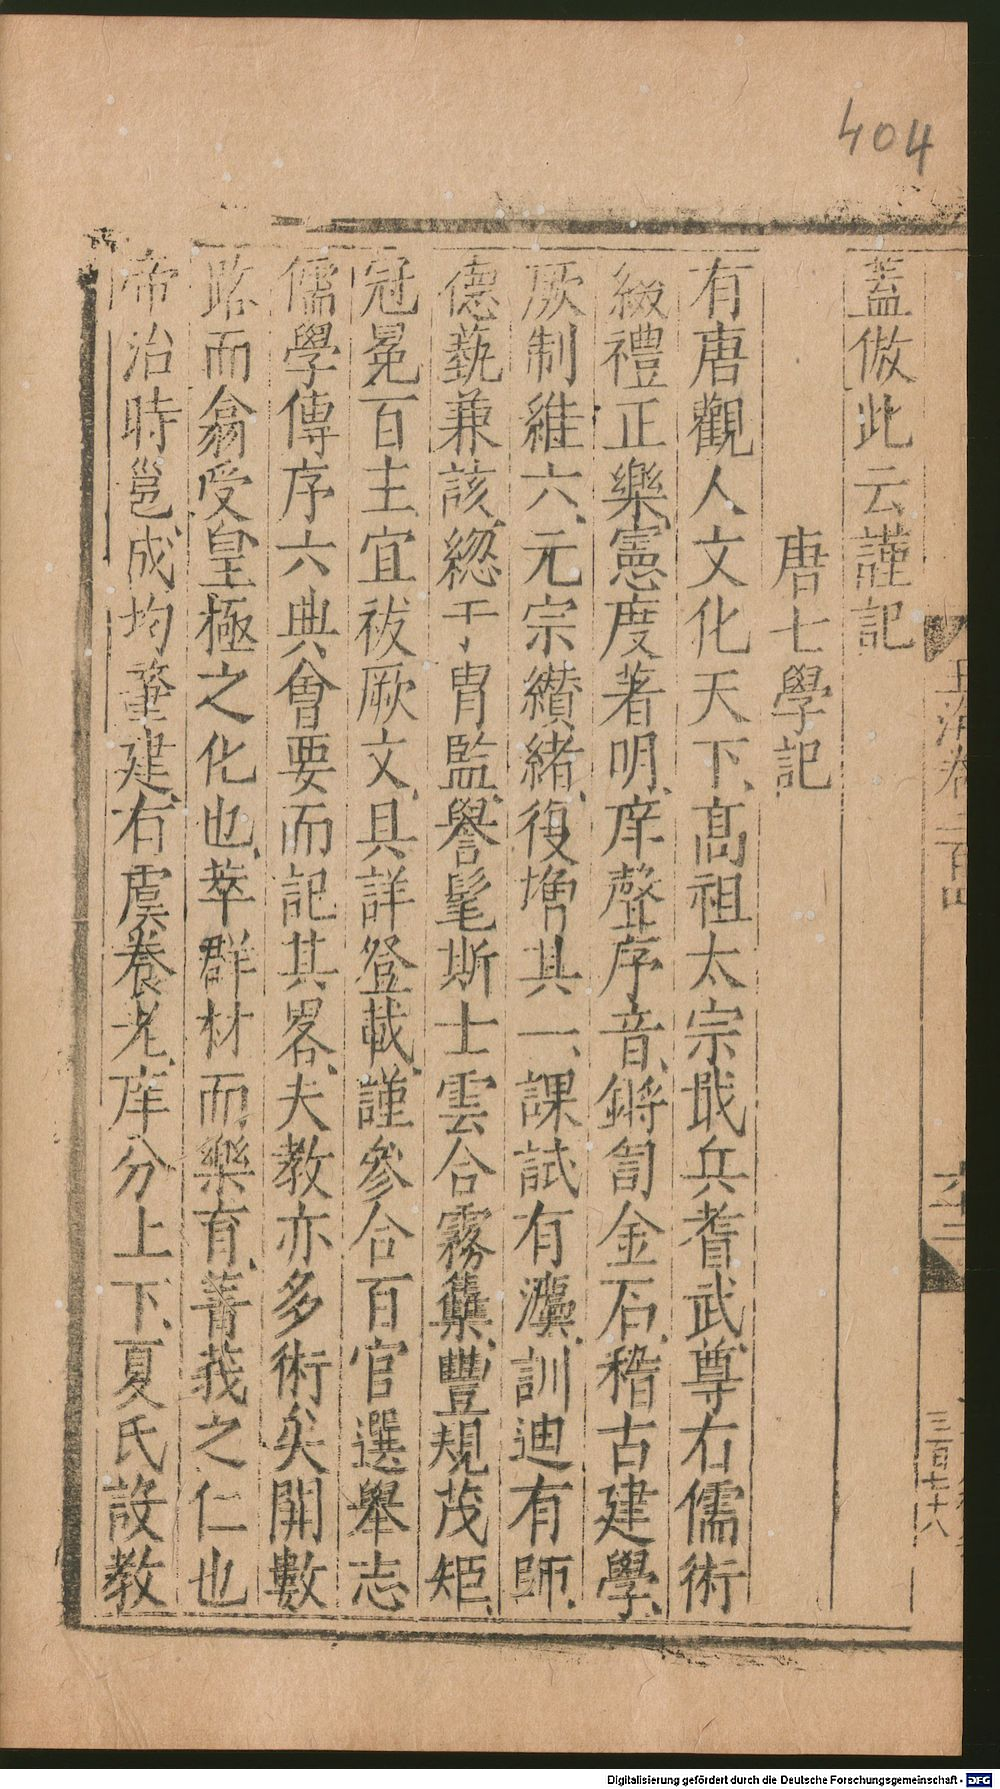 404
蓋倣此云謹記
唐七學記
有唐觀人文化天下、高祖太宗戢兵耆武、尊右儒術
綴禮正樂、憲度著明、庠聲序音、鏘訇金石、稽古建學、
厥制維六、元宗纘緒、復增其一、課試有灋、訓迪有師、
德藝兼該、總于胄監、譽髦斯士、雲合霧集、豐規茂矩、
冠冕百主、宜祓厥文、具詳登載、謹參合百官選舉志
儒學傳序六典會要而記其畧、夫教亦多術矣、開數
路而翕受、皇極之化也、萃群材而樂育、菁莪之仁也
帝治時邕、成均肇建、右虞養老、庠分上下、夏氏設教
玉海卷二百四
六十二
三百七十八
Digitalisierung gefördert durch die Deutsche Forschungsgemeinschaft - DFG